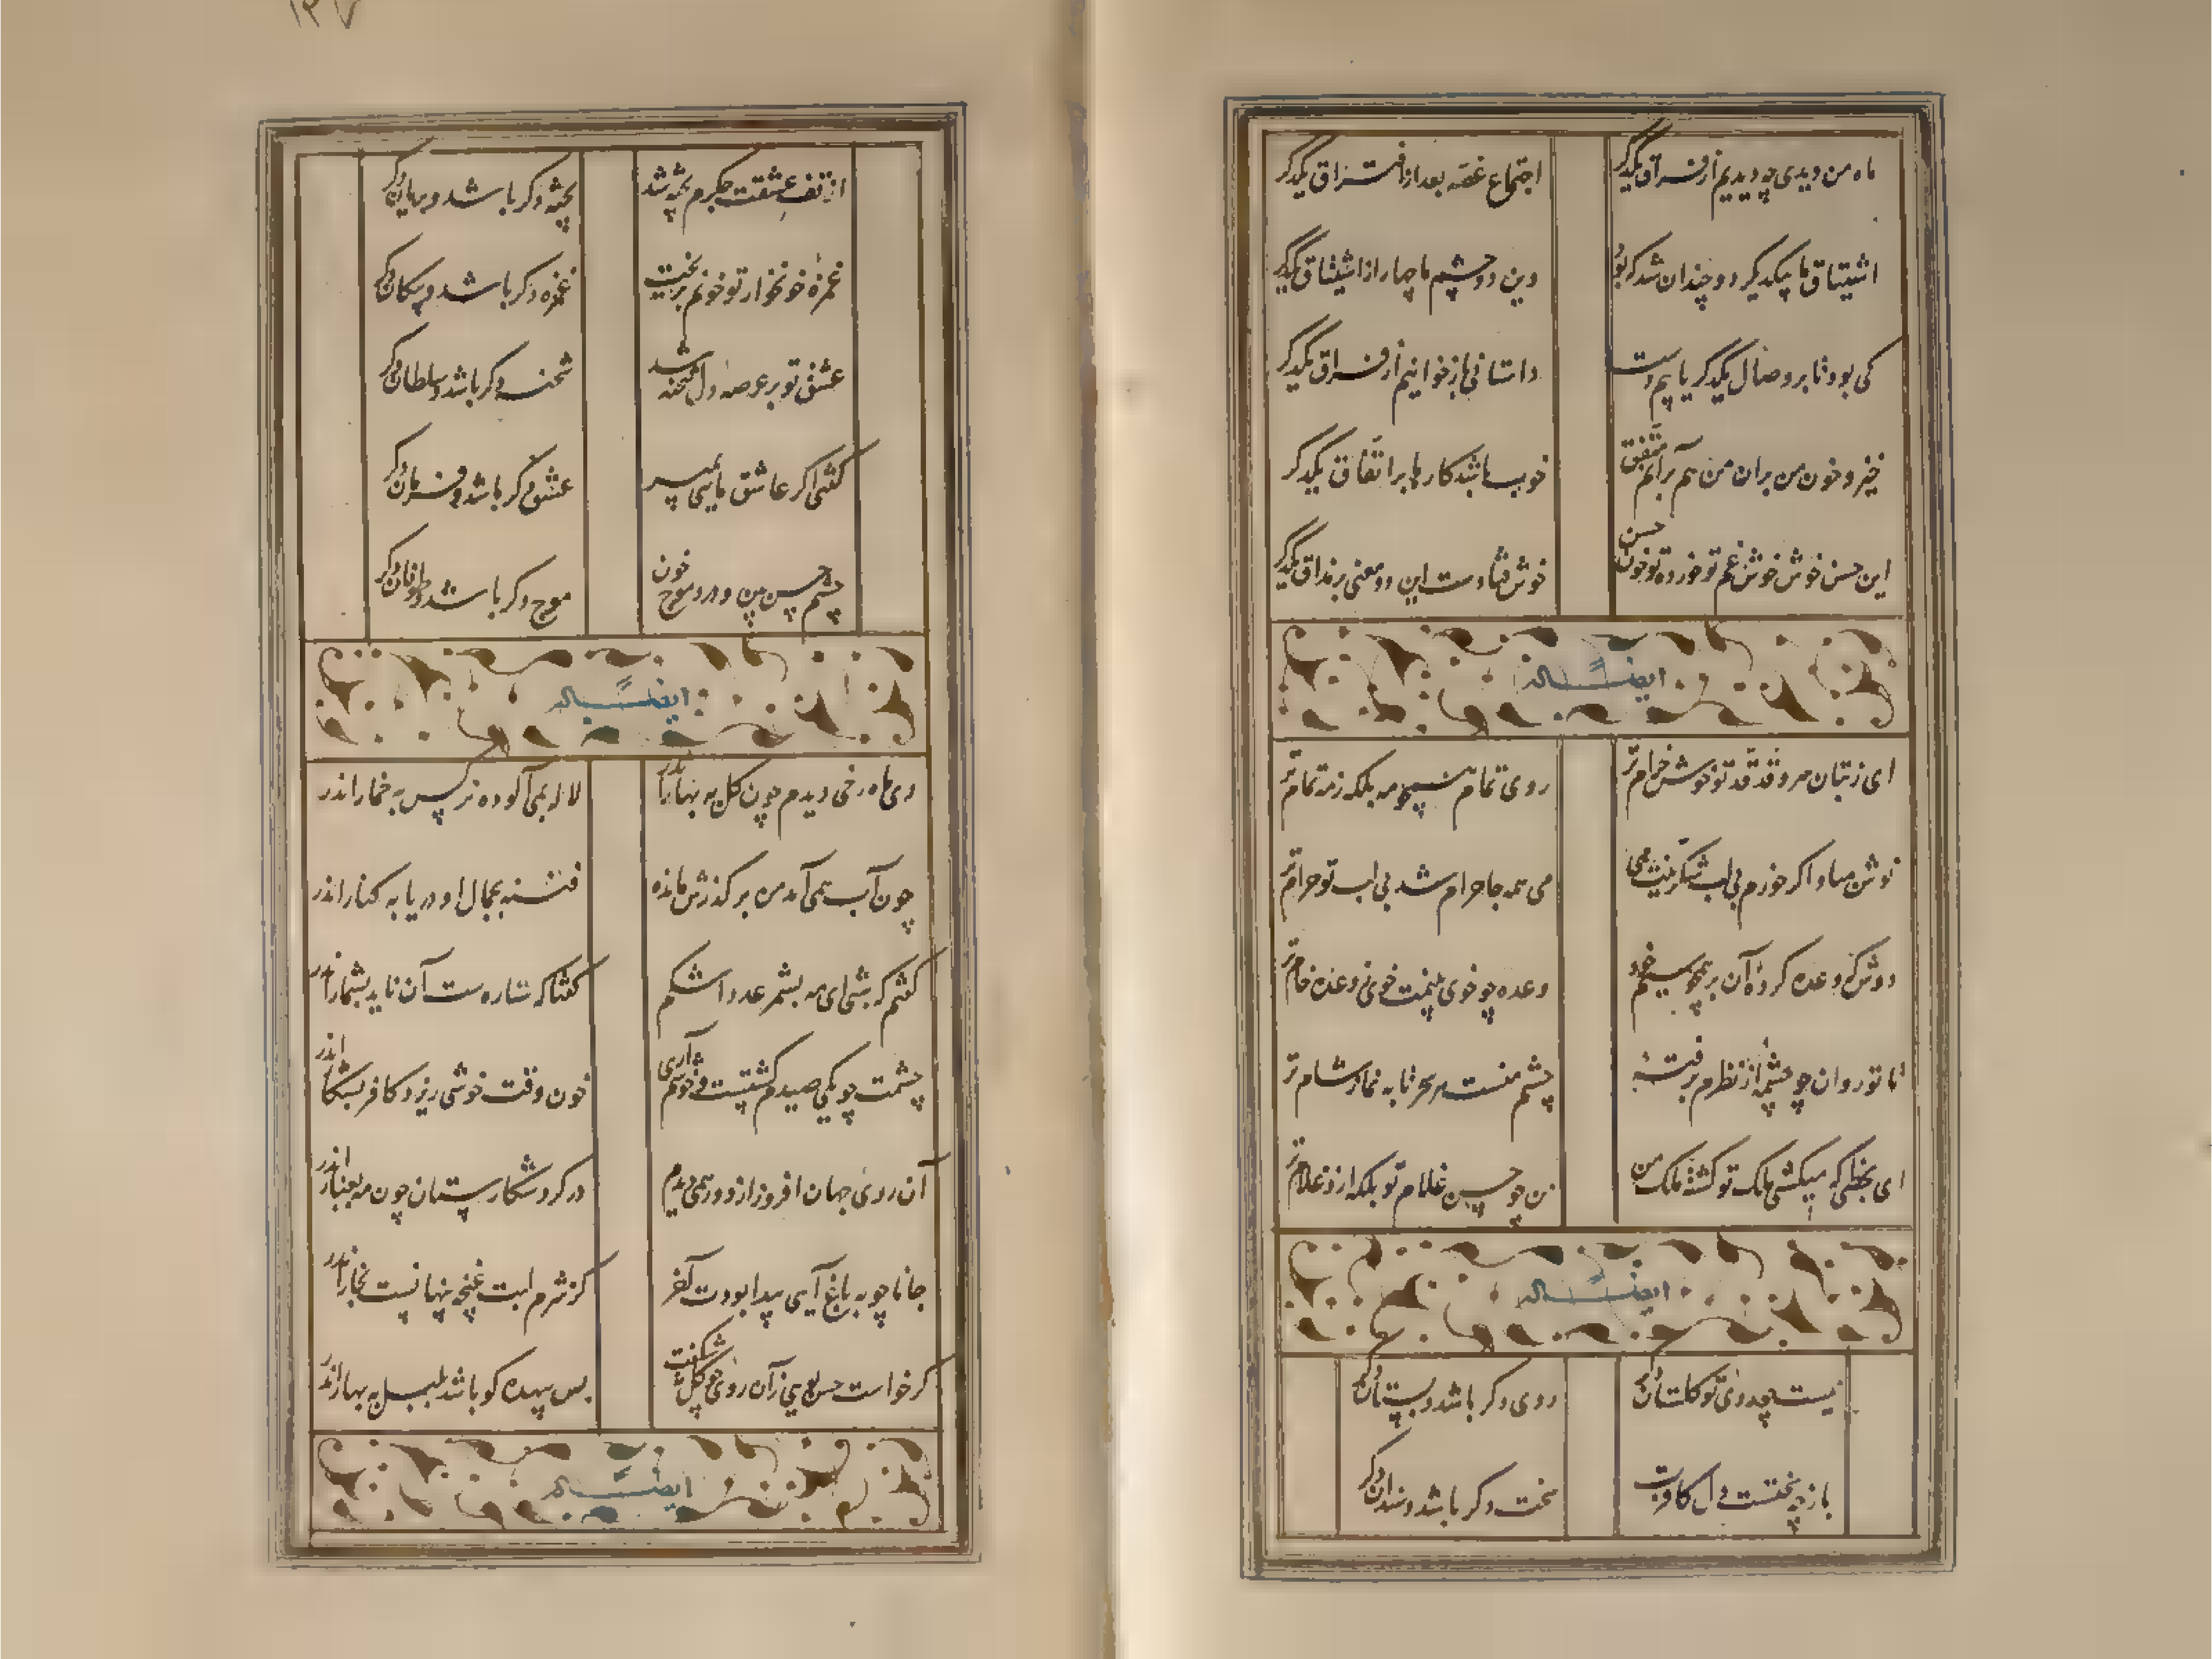 ماه من دیدی چه دیدیم از فراق یکدگر اجتماع غصه بعد از افتراق یکدگر
اشتیاق ما بیکدیگر دو چندان شد که بود وین دو چشم ما چهار از اشتیاق یکدگر
کی بود تا بر وصال یکدگر یابیم دست داستانی باز خوانیم از فراق یکدگر
خیز و خون من بران من هم برآنم متفق خوب باشد کارها بر اتفاق یکدگر
این حسن خوش خوش غم تو خورده تو خون حسن خوش فتادست این دو معنی بر مذاق یکدگر
ایضاً له
ای ز بتان سرو قد قد تو خوش خرام تر روی تمام همچو مه بلکه ز مه تمام تر
نوش مباد اکر خورم بی لب شکرینت می می همه جا حرام شد بی لب تو حرام تر
دوش که وعده کرده آن بر همچو سیم خود وعده چو خوی خوی وعده خام تر
تا تو روان چو چشمه از نظرم برفته چشم منست هر سحر تا به نماز شام تر
ای بخطی که میکشی ملک تو کشته ملک من من چو حسن غلام تو بلکه ازو غلام تر
ایضاً له
نیست چو روی تو کلستان دگر روی دکر باشد و بستان دگر
باز چه سختست دل کافرت سخت دکر باشد و سندان دگر
۱۳۷
از تف عشقت جکرم پخته شد پخته دکر باشد و بریان دگر
غمزه خونخوار تو خونم بریخت غمزه دکر باشد و پیکان دگر
عشق تو بر عرصه دل شحنه شد شحنه دکر باشد و سلطان دگر
کفتی اکر عاشق مایی بمیر عشق دکر باشد و فرمان دگر
چشم حسن بین و درو موج خون موج دکر باشد و طوفان دگر
ایضاً له
دی ماه رخی دیدم چون کل به بهار اندر لاله بمی آلوده نرکس به خمار اندر
چون آب همی آمد من بر کذرش مانده فتنه بجمال او دریا به کنار اندر
کفتم که شبی ای مه بشمر عدد اشکم کفتا که ستاره ست آن ناید بشمار اندر
چشمت چو یکی صیدم کشتست و خوشم آری خون وقت خوشی ریزد کافر بشکار اندر
آن روی جهان افروز از دور همی دیدم در کرد شکارستان چون مه بغبار اندر
جانا چو به باغ آیی پیدا بودت آخر کز شرم لبت غنچه پنهانست بخار اندر
کر خواست حسن بوی زان روی چو کل شکفت بس بیهده کو باشد بلبل به بهار اندر
ایضاً له